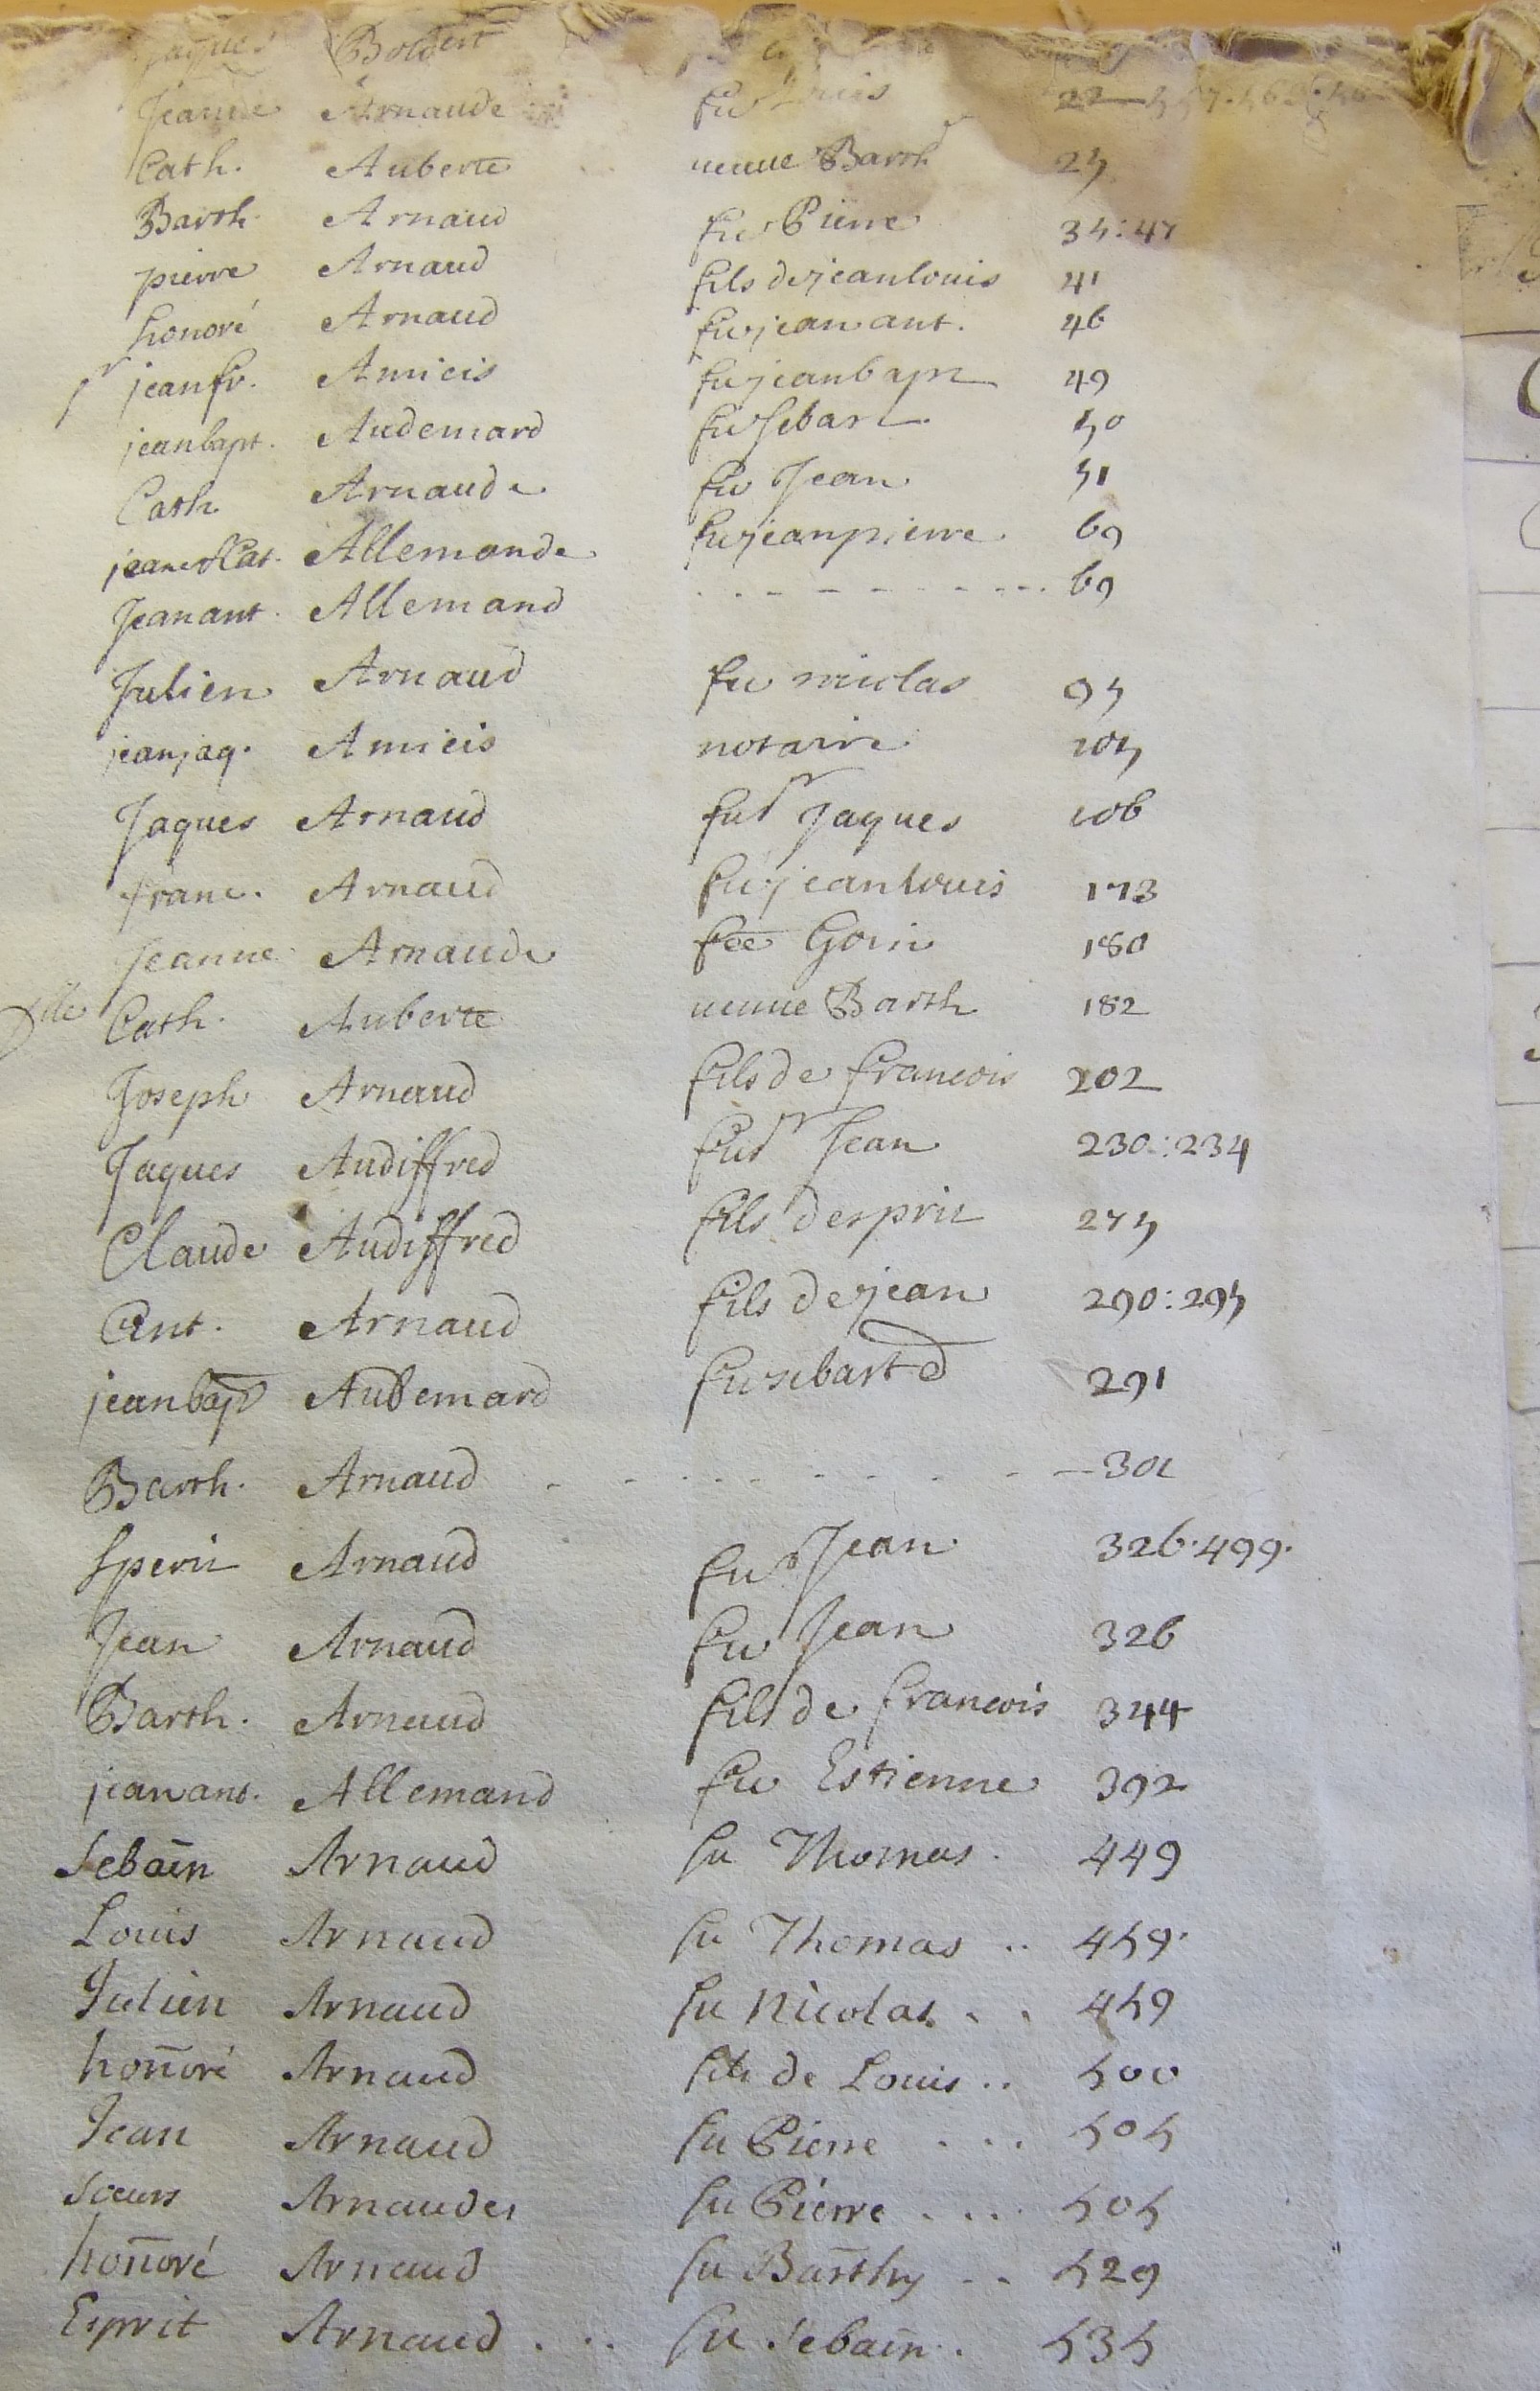 Jaques
Jeanne Arnaude fu Louis 22
Cath. Auberte ueuue Barth 25
Barth. Arnaud fu Pierre 35:47
pierre Arnaud fils de jean louis 41
honoré Arnaud fu jean ant. 46
sr jean fr. Amicis fu jean bapt 49
jean bapt. Audemard fu sebast 50
Cath Arnaude fu Jean 51
jeane &Cat. Allemande fu jean pierre 69
Jean ant. Allemand 69
Julien Arnaud fu nicolas 95
jean jaq. Amicis notaire 105
Jaques Arnaud fu sr Jaques 106
franc. Arnaud fu jean louis 173
Jeanne Arnaude fee Gorin 180
Dlle Cath. Auberte ueuue Barth 182
Joseph Arnaud fils de francois 202
Jaques Audiffred fu sr Jean 230:234
Claude Audiffred fils desprit 275
Ant. Arnaud fils de jean 290:295
jean bapt Audemard fu sebast 291
Barth. Arnaud 301
Sperit Arnaud fu Jean 326.499.
Jean Arnaud fu Jean 326
Barth. Arnaud fils de francois 344
jean ant. Allemand fu Estienne 392
Sebain Arnaud fu Thomas. 449
Louis Arnaud fu Thomas .. 459.
Julien Arnaud fu Nicolas . . 459
honnoré Arnaud fils de Louis .. 500
Jean Arnaud fu Pierre . . . 505
Soeurs Arnaudes fu Pierre . . . 505
honnoré Arnaud fu Barthy . . 529
Esprit Arnaud . . . fu Sebain . 535